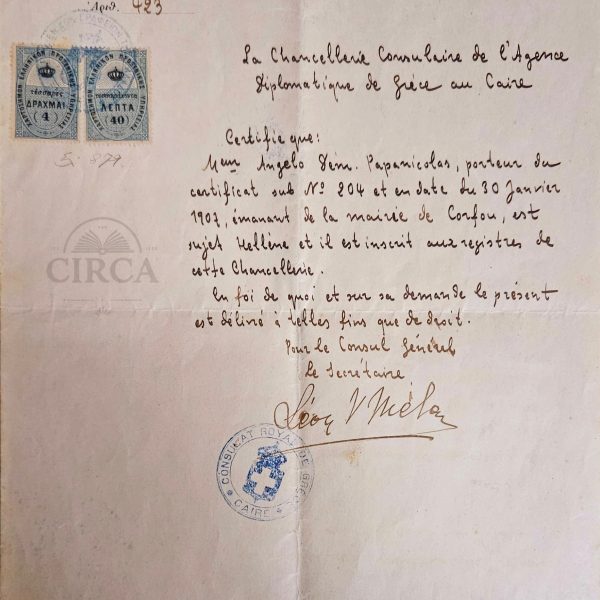 Ἀριθ. 423
ΔΡΑΧΜΑΙ
(4)
ΛΕΠΤΑ
(40)
CIRCA
La Chancellerie Consulaire de l'Agence
Diplomatique de Grèce au Caire
Certifie que:
Angelo Dém. Papanicolas, porteur du
certificat sub Nº 204 et en date du 30 Janvier
1907, émanant de la mairie de Corfou, est
sujet Hellène et il est inscrit aux registres de
cette Chancellerie.
En foi de quoi et sur sa demande le présent
est délivré à telles fins que de droit.
Pour le Consul Général
Le Secrétaire
Léon
CONSULAT ROYAL DE GRÈCE
CAIRE